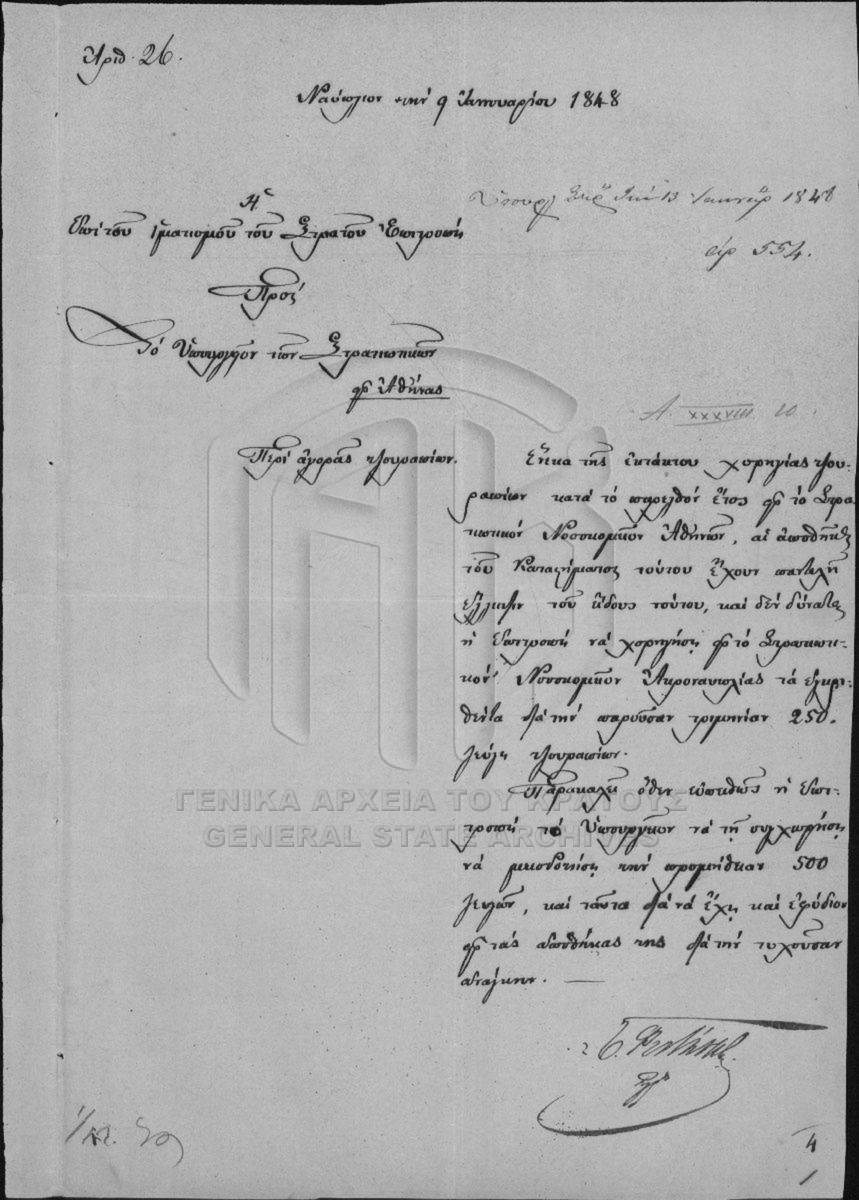 Ἀριθ. 26.
Ναύπλιον τὴν 9 Ἰανουαρίου 1848
Ἡ
Ἐπὶ τοῦ ἱματισμοῦ τοῦ Στρατοῦ Ἐπιτροπὴ
Πρὸς
Τὸ Ὑπουργεῖον τῶν Στρατιωτικῶν
εἰς Ἀθήνας
13 1848
ἀρ 554.
A XXXVIII 10.
Περὶ ἀγορᾶς τζουραπίων.
Ἕνεκα τῆς ἐκτάκτου χορηγίας τζου-
ραπίων κατὰ τὸ παρελθὸν ἔτος εἰς τὸ Στρα-
τιωτικὸν Νοσοκομεῖον Ἀθηνῶν, αἱ ἀποθῆκαι
τοῦ Καταστήματος τούτου ἔχουν παντελῆ
ἔλλειψιν τοῦ εἴδους τούτου, καὶ δὲν δύναται
ἡ Ἐπιτροπὴ νὰ χορηγήσῃ εἰς τὸ Στρατιωτι-
κὸν Νοσοκομεῖον Ἀκροναυπλίας τὰ ἐγκρι-
θέντα διὰ τὴν παροῦσαν τριμηνίαν 250.
ζεύγη τζουραπίων.
Παρακαλεῖ ὅθεν εὐπειθῶς ἡ Ἐπι-
τροπὴ τὸ Ὑπουργεῖον νὰ τῇ συγχωρήσῃ
νὰ μειοδοτήσῃ τὴν προμήθειαν 500
ζευγῶν, καὶ ταῦτα διὰ νὰ ἔχῃ καὶ ἐφόδιον
εἰς τὰς ἀποθήκας της διὰ τὴν τυχοῦσαν
ἀνάγκην.
4
1
ΓΕΝΙΚΑ ΑΡΧΕΙΑ ΤΟΥ ΚΡΑΤΟΥΣ
GENERAL STATE ARCHIVES